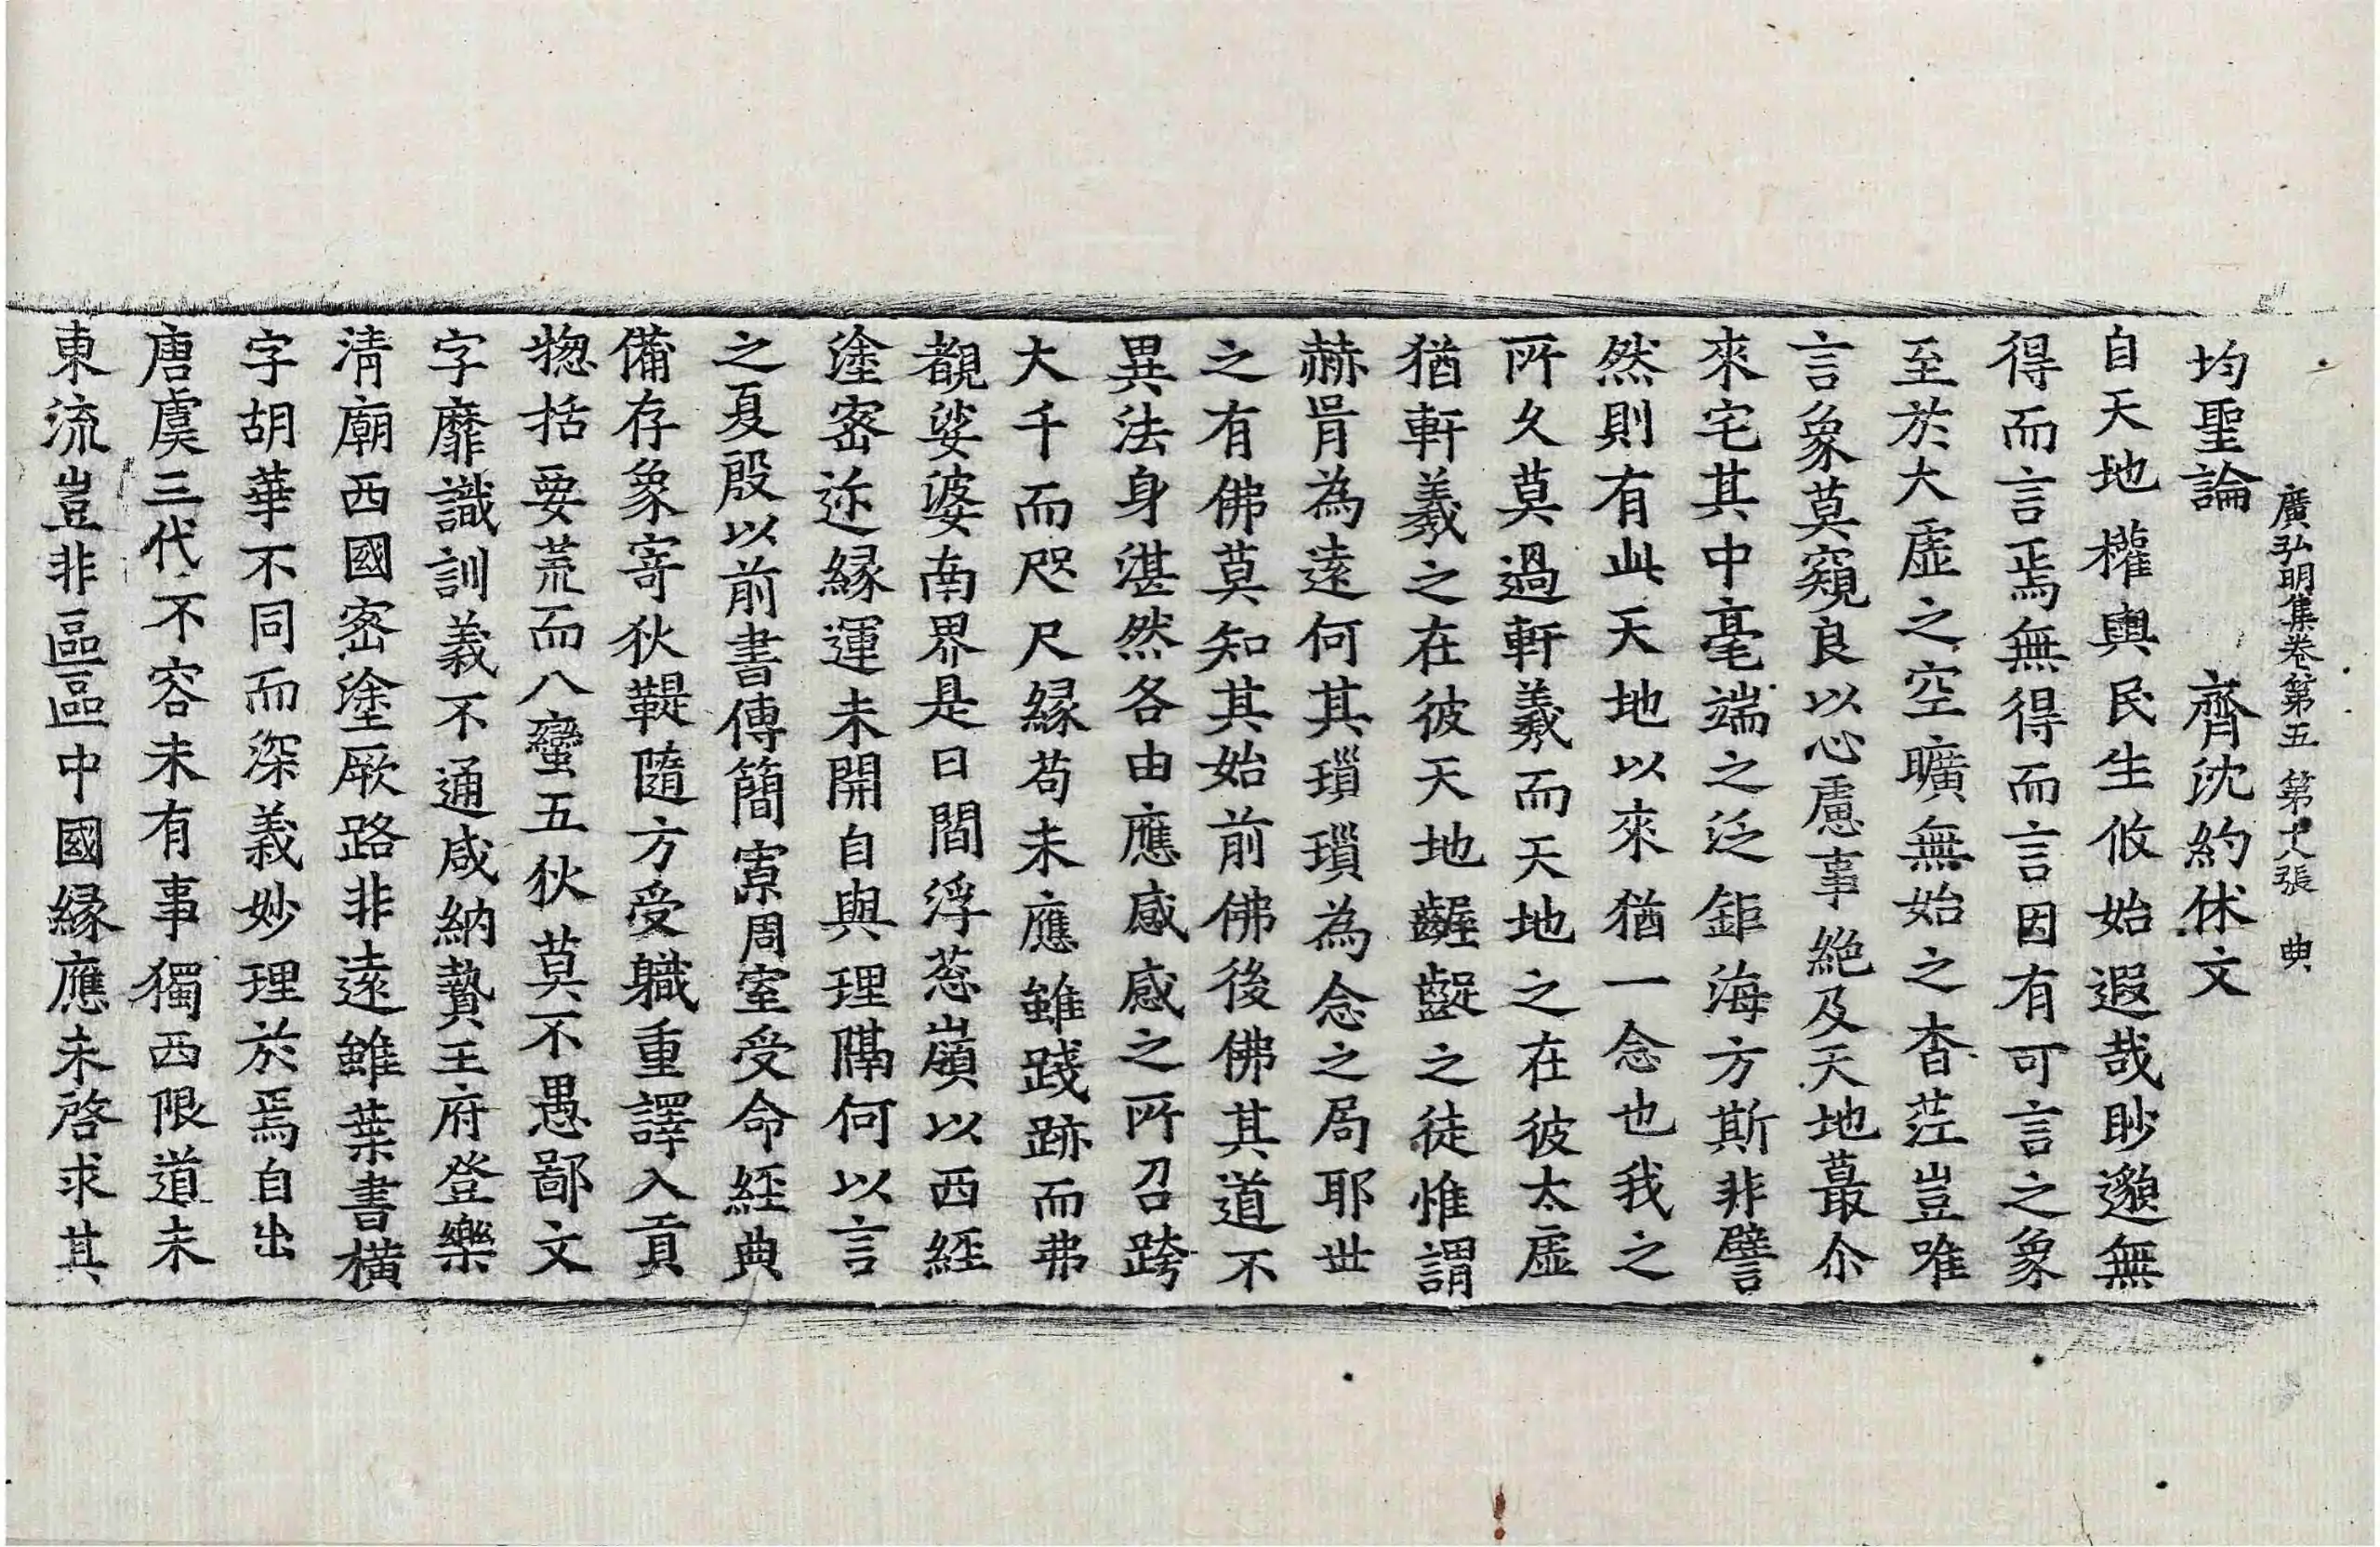 廣弘明集卷第五 第十八張 典
均聖論 齊沈約休文
自天地權輿民生攸始遐哉眇邈無
得而言焉無得而言因有可言之象
至於大虛之空曠無始之杳茫豈唯
言象莫窺良以心慮事絶及天地蕞尒
來宅其中毫端之泛鉅海方斯非譬
然則有此天地以來猶一念也我之
所久莫過軒羲而天地之在彼太虛
猶軒羲之在彼天地齷齪之徒惟謂
赫胥為遠何其瑣瑣為念之局耶世
之有佛莫知其始前佛後佛其道不
異法身湛然各由應感感之所召跨
大千而咫尺緣苟未應雖踐跡而弗
覩娑婆南界是曰閻浮葱嶺以西經
塗密迩緣運未開自與理隔何以言
之夏殷以前書傳簡寡周室受命經典
備存象寄狄鞮隨方受職重譯入貢
惣括要荒而八蠻五狄莫不愚鄙文
字靡識訓義不通咸納贄王府登樂
清廟西國密塗厥路非遠雖葉書橫
字胡華不同而深義妙理於焉自出
唐虞三代不容未有事獨西限道未
東流豈非區區中國緣應未啓求其